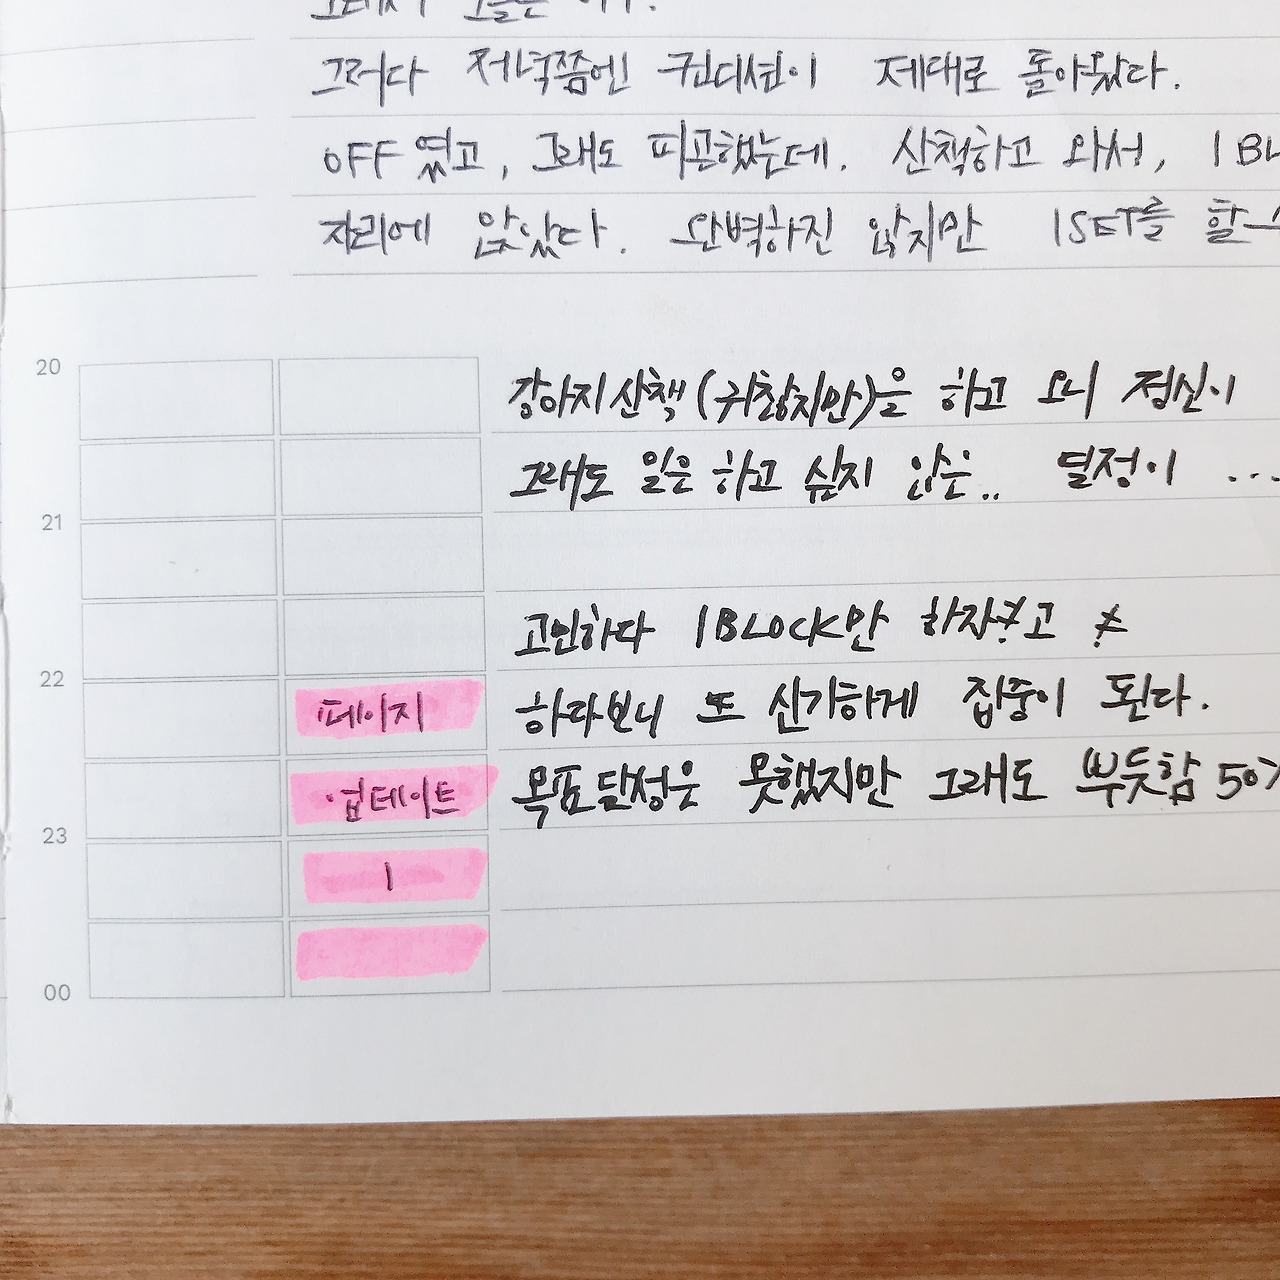 그러다 저녁쯤엔 컨디션이 제대로 돌아왔다.
OFF였고, 그래도 피곤했는데. 산책하고 와서, 1 BL
자리에 앉았다. 완벽하진 않지만 1SET를 할
20
강아지산책(귀찮지만)을 하고 오니 정신이
그래도 일은 하고 싶지 않은.. 열정이 ...
21
고민하다 1BLOCK만 하자고
22
페이지 하다보니 또 신기하게 집중이 된다.
업데이트 목표달성은 못했지만 그래도 뿌듯함 50%
23
1
00